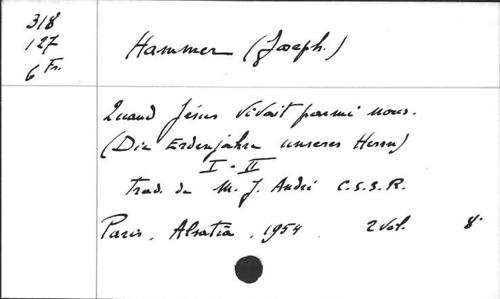 318
127
6 Fr.
Hammer (Joseph.)
Quand Jésus vivait parmi nous.
(Die Erdenjahre unseres Herrn)
I - II
Trad. de M. J. André C.S.S.R.
Paris, Alsatia, 1954. 2 Vol. 8°